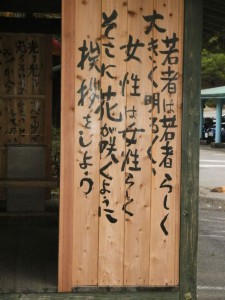 若者は若者らしく
大きく明るく、
女性は女性らしく
そこに花が咲くように
挨拶をしよう